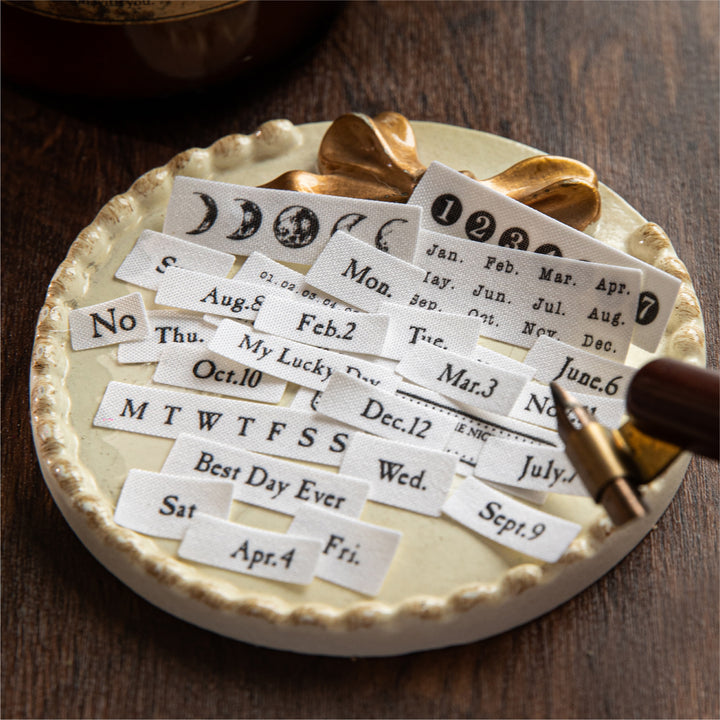 you.
1 2 3 7
Jan. Feb. Mar. Apr.
Jun. Jul. Aug.
Oct. Nov. Dec.
Mon.
S
01.02.03.04
Aug.8
Feb.2
Tue.
No
Thu.
My Lucky Day
June.6
Oct.10
Mar.3
Dec.12
M T W T F S S
Best Day Ever
Wed.
July.7
Sat
Sept.9
Apr.4
Fri.